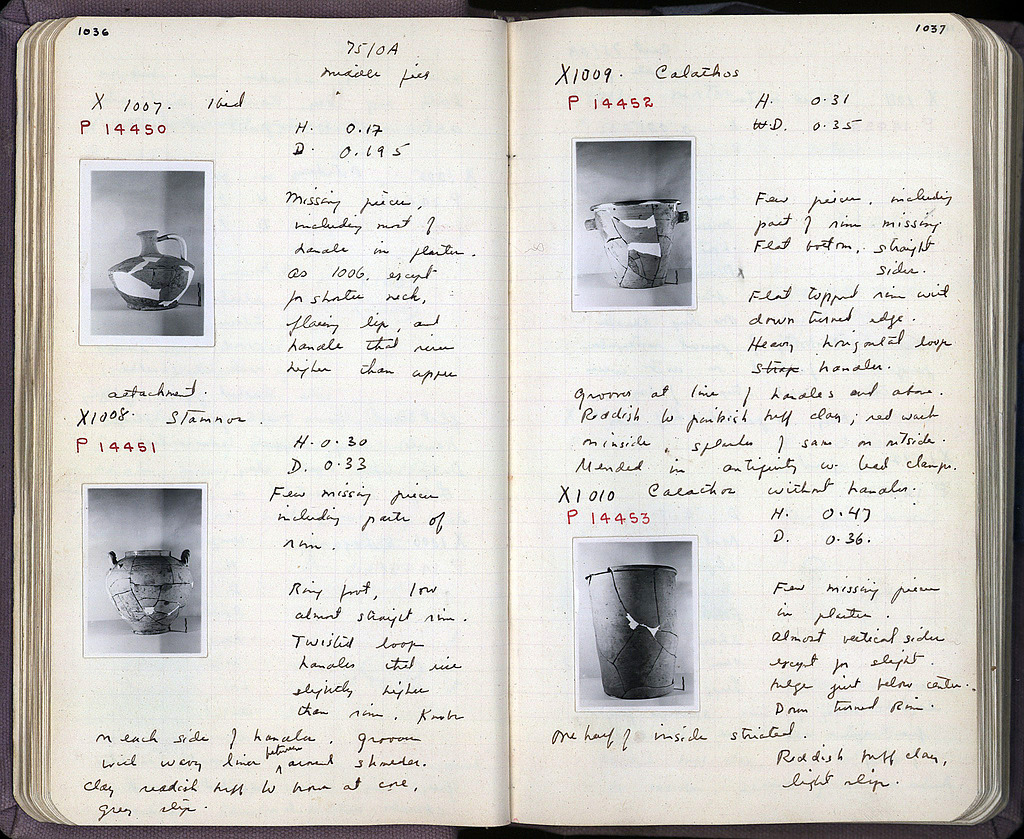 1036
75/OA
Middle fill
X 1007. Ibid
P 14450
H. 0.17
D. 0.195
Missing pieces,
including most of
handle in plaster.
As 1006, except
for shorter neck,
flaring lip, and
handle that rises
higher than upper
attachment.
X1008. Stamnos.
P 14451
H. 0.30
D. 0.33
Few missing pieces
including parts of
rim.
Ring foot, low
almost straight rim.
Twisted loop
handles that rise
slightly higher
than rim. Knobs
on each side of handles. Grooves
with wavy lines between around shoulder.
Clay reddish buff to brown at core,
grey slip.
1037
X1009. Calathos
P 14452
H. 0.31
D. 0.35
Few pieces, including
part of rim missing
Flat bottom, straight
sides.
Flat topped rim with
down turned edge.
Heavy horizontal loop
strap handles.
Grooves at line of handles and above.
Reddish to pinkish buff clay; red wash
on inside, splashes of same on outside.
Mended in antiquity w. lead clamps.
X1010 Calathos without handles.
P 14453
H. 0.47
D. 0.36.
Few missing pieces
in plaster.
Almost vertical sides
except for slight
bulge just below center.
Down turned Rim.
One half of inside striated.
Reddish buff clay,
light slip.